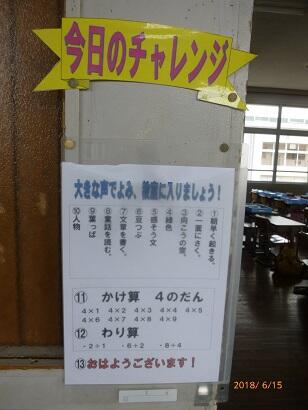 今日のチャレンジ
大きな声でよみ、教室に入りましょう!
①朝早く起きる。
②一面にさく。
③向こうの空。
④緑色
⑤感そう文
⑥豆つぶ
⑦文章を書く。
⑧童話を読む。
⑨葉っぱ
⑩人物
⑪ かけ算 4のだん
4×1 4×2 4×3 4×4 4×5
4×6 4×7 4×8 4×9
⑫ わり算
・2÷1 ・6÷2 ・8÷4
⑬おはようございます!
2018/6/15